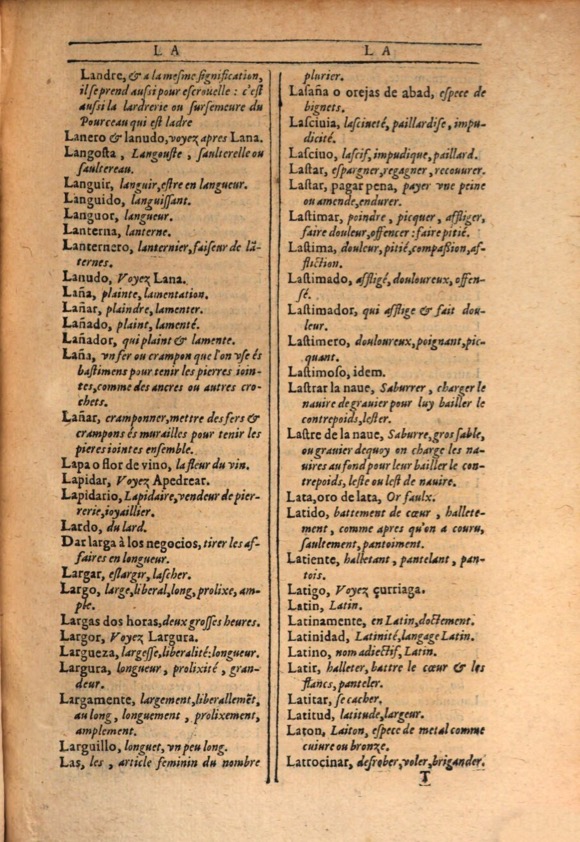 LA
LA
Landre, & a la mesme signification,
il se prend aussi pour escrouelle : c'est
aussi la lardrerie ou sursemeure du
Pourceau qui est ladre
Lanero & lanudo, voyez apres Lana.
Langosta, Langouste, saulterelle ou
saultereau.
Languir, languir, estre en langueur.
Languido, languissant.
Languor, langueur.
Lanterna, lanterne.
Lanternero, lanternier, faiseur de lā-
ternes.
Lanudo, Voyez Lana.
Laña, plainte, lamentation.
Lañar, plaindre, lamenter.
Lañado, plaint, lamenté.
Lañador, qui plaint & lamente.
Laña, vn fer ou crampon que l'on vse és
bastimens pour tenir les pierres ioin-
tes, comme des ancres ou autres cro-
chets.
Lañar, cramponner, mettre des fers &
crampons és murailles pour tenir les
pieres iointes ensemble.
Lapa o flor de vino, la fleur du vin.
Lapidar, Voyez Apedrear.
Lapidario, Lapidaire, vendeur de pier-
rerie, ioyaillier.
Lardo, du lard.
Dar larga à los negocios, tirer les af-
faires en longueur.
Largar, eslargir, lascher.
Largo, large, liberal, long, prolixe, am-
ple.
Largas dos horas, deux grosses heures.
Largor, Voyez Largura.
Largueza, largesse, liberalité: longueur.
Largura, longueur, prolixité, gran-
deur.
Largamente, largement, liberallemēt,
au long, longuement, prolixement,
amplement.
Larguillo, longuet, vn peu long.
Las, les, article feminin du nombre
plurier.
Lasaña o orejas de abad, espece de
bignets.
Lasciuia, lasciueté, paillardise, impu-
dicité.
Lasciuo, lascif, impudique, paillard.
Lastar, espargner, regagner, recouurer.
Lastar, pagar pena, payer vne peine
ou amende, endurer.
Lastimar, poindre, picquer, affliger,
faire douleur, offencer : faire pitié.
Lastima, douleur, pitié, compassion, af-
fliction.
Lastimado, affligé, douloureux, offen-
sé.
Lastimador, qui afflige & fait dou-
leur.
Lastimero, douloureux, poignant, pic-
quant.
Lastimoso, idem.
Lastrar la naue, Saburrer, charger le
nauire de grauier pour luy bailler le
contrepoids, lester.
Lastre de la naue, Saburre, gros sable,
ou grauier dequoy on charge les na-
uires au fond pour leur bailler le con-
trepoids, leste ou lest de nauire.
Lata, oro de lata, Or faulx.
Latido, battement de cœur, hallete-
ment, comme apres qu'on a couru,
saultement, pantoiment.
Latiente, halletant, pantelant, pan-
tois.
Latigo, Voyez çurriaga.
Latin, Latin.
Latinamente, en Latin, doctement.
Latinidad, Latinité, langage Latin.
Latino, nom adiectif, Latin.
Latir, halleter, battre le cœur & les
flancs, panteler.
Latitar, se cacher.
Latitud, latitude, largeur.
Laton, Laiton, espece de metal comme
cuiure ou bronze.
Latrocinar, desrober, voler, brigander.
T